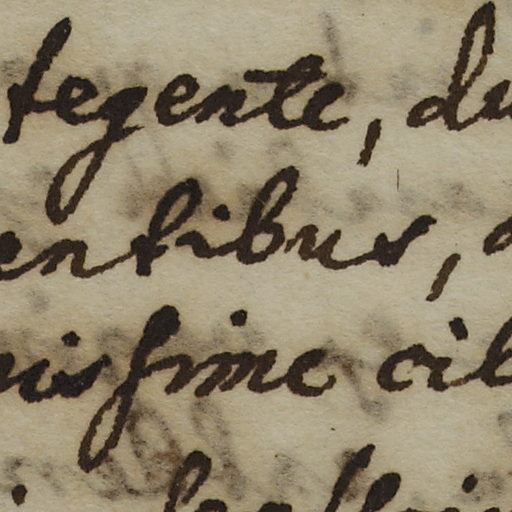 tegente, du
entibus,
issime cib